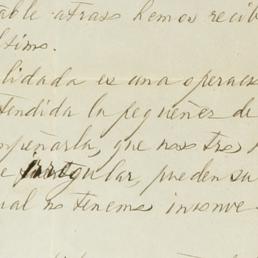 able atraso hemos recib
ltimo.
lidada es una operac
tendida la pequeñez de
mpeñarla, que nos tres
e irregular, pueden su
ual no tenemos inconve